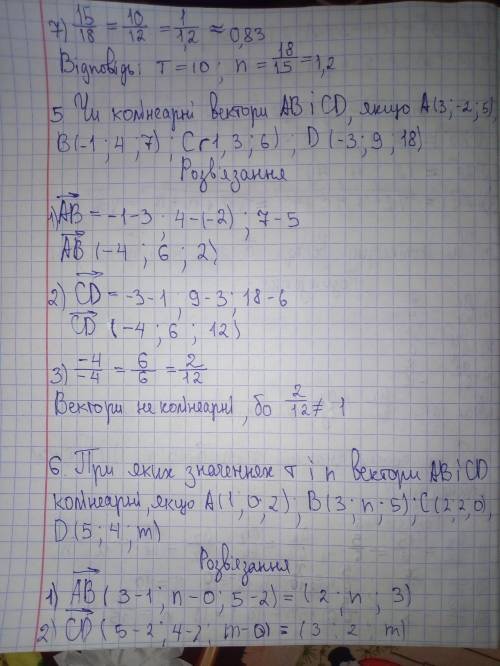 7) 15/18 = 10/12 = 1/1,2 ≈ 0,83
Відповідь: т = 10 ; n = 18/15 = 1,2
5 Чи колінеарні вектори AB і CD, якщо A(3;-2;5),
B(-1; 4; 7) ; C(1, 3; 6) ; D(-3; 9, 18)
Розв'язання
1) AB = -1-3 ; 4-(-2) ; 7-5
AB (-4 ; 6 ; 2)
2) CD = -3-1 ; 9-3; 18-6
CD (-4 ; 6 ; 12)
3) -4/-4 = 6/6 = 2/12
Вектори не колінеарні, бо 2/12 ≠ 1
6. При яких значеннях т і n вектори AB і CD
колінеарні, якщо A(1, 0, 2); B(3; n; 5); C(2, 2, 0),
D(5; 4; m)
Розв'язання
1) AB (3-1; n-0; 5-2) = (2; n ; 3)
2) CD (5-2; 4-2; m-0) = (3 ; 2 ; m)